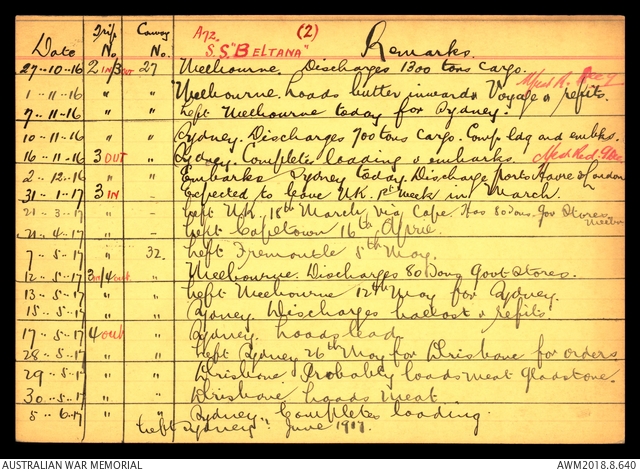 A72. (2)
Date Trip No. Convoy No. S.S. "BELTANA" Remarks.
27..10..16 2 IN/3 OUT 27 Melbourne. Discharges 1300 tons cargo.
1..11..16 " " Melbourne, loads butter inwards Voyage & refits.
7..11..16 " " Left Melbourne today for Sydney.
10..11..16 " " Sydney. Discharges 700 tons cargo. Comp. ldg and embks.
16..11..16 3 OUT " Sydney. Complete loading & embarks.
2..12..16 " " Embarks Sydney today. Discharge ports Havre & London
31..1..17 3 IN - Expected to leave U.K. 1st week in March.
21..3..17 " - Left U.K. 18th March via Cape. Has 80 tons Gov Stores
21..4..17 " - Left Capetown 16th April.
7..5..17 " 32. Left Fremantle 5th May.
12..5..17 3 IN/4 OUT " Melbourne. Discharges 80 tons Govt Stores.
13..5..17 " " Left Melbourne 12th May for Sydney.
15..5..17 " " Sydney. Discharges ballast & refits.
17..5..17 4 OUT " Sydney. Loads lead
28..5..17 " " Left Sydney 26th May for Brisbane for orders
29..5..17 " " Brisbane Probably loads meat Gladstone.
30..5..17 " " Brisbane Loads meat.
5..6..17 " " Sydney Completes loading.
Left Sydney June 1917.
AUSTRALIAN WAR MEMORIAL AWM2018.8.640